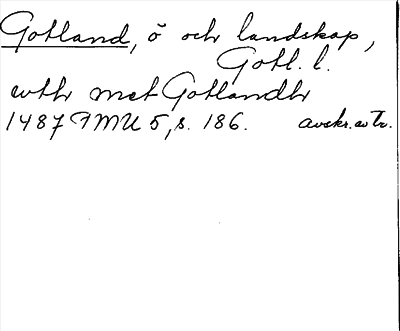 Gotland, ö och landskap,
Gotl. l.
wth met Gotlandh
1487 FMU 5, s. 186. avskr. av Tr.